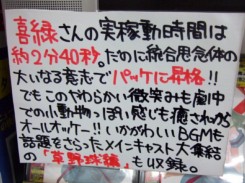 喜緑さんの実稼動時間は
約2分40秒。なのに統合思念体の
大いなる意志でパッケに昇格!!
でもこのやわらかい微笑みも劇中
での小動物っぽい感じも癒されるから
オールオッケー!! いかがわしいBGMも
話題をさらったメインキャスト大集結
の「草野球編」も収録。